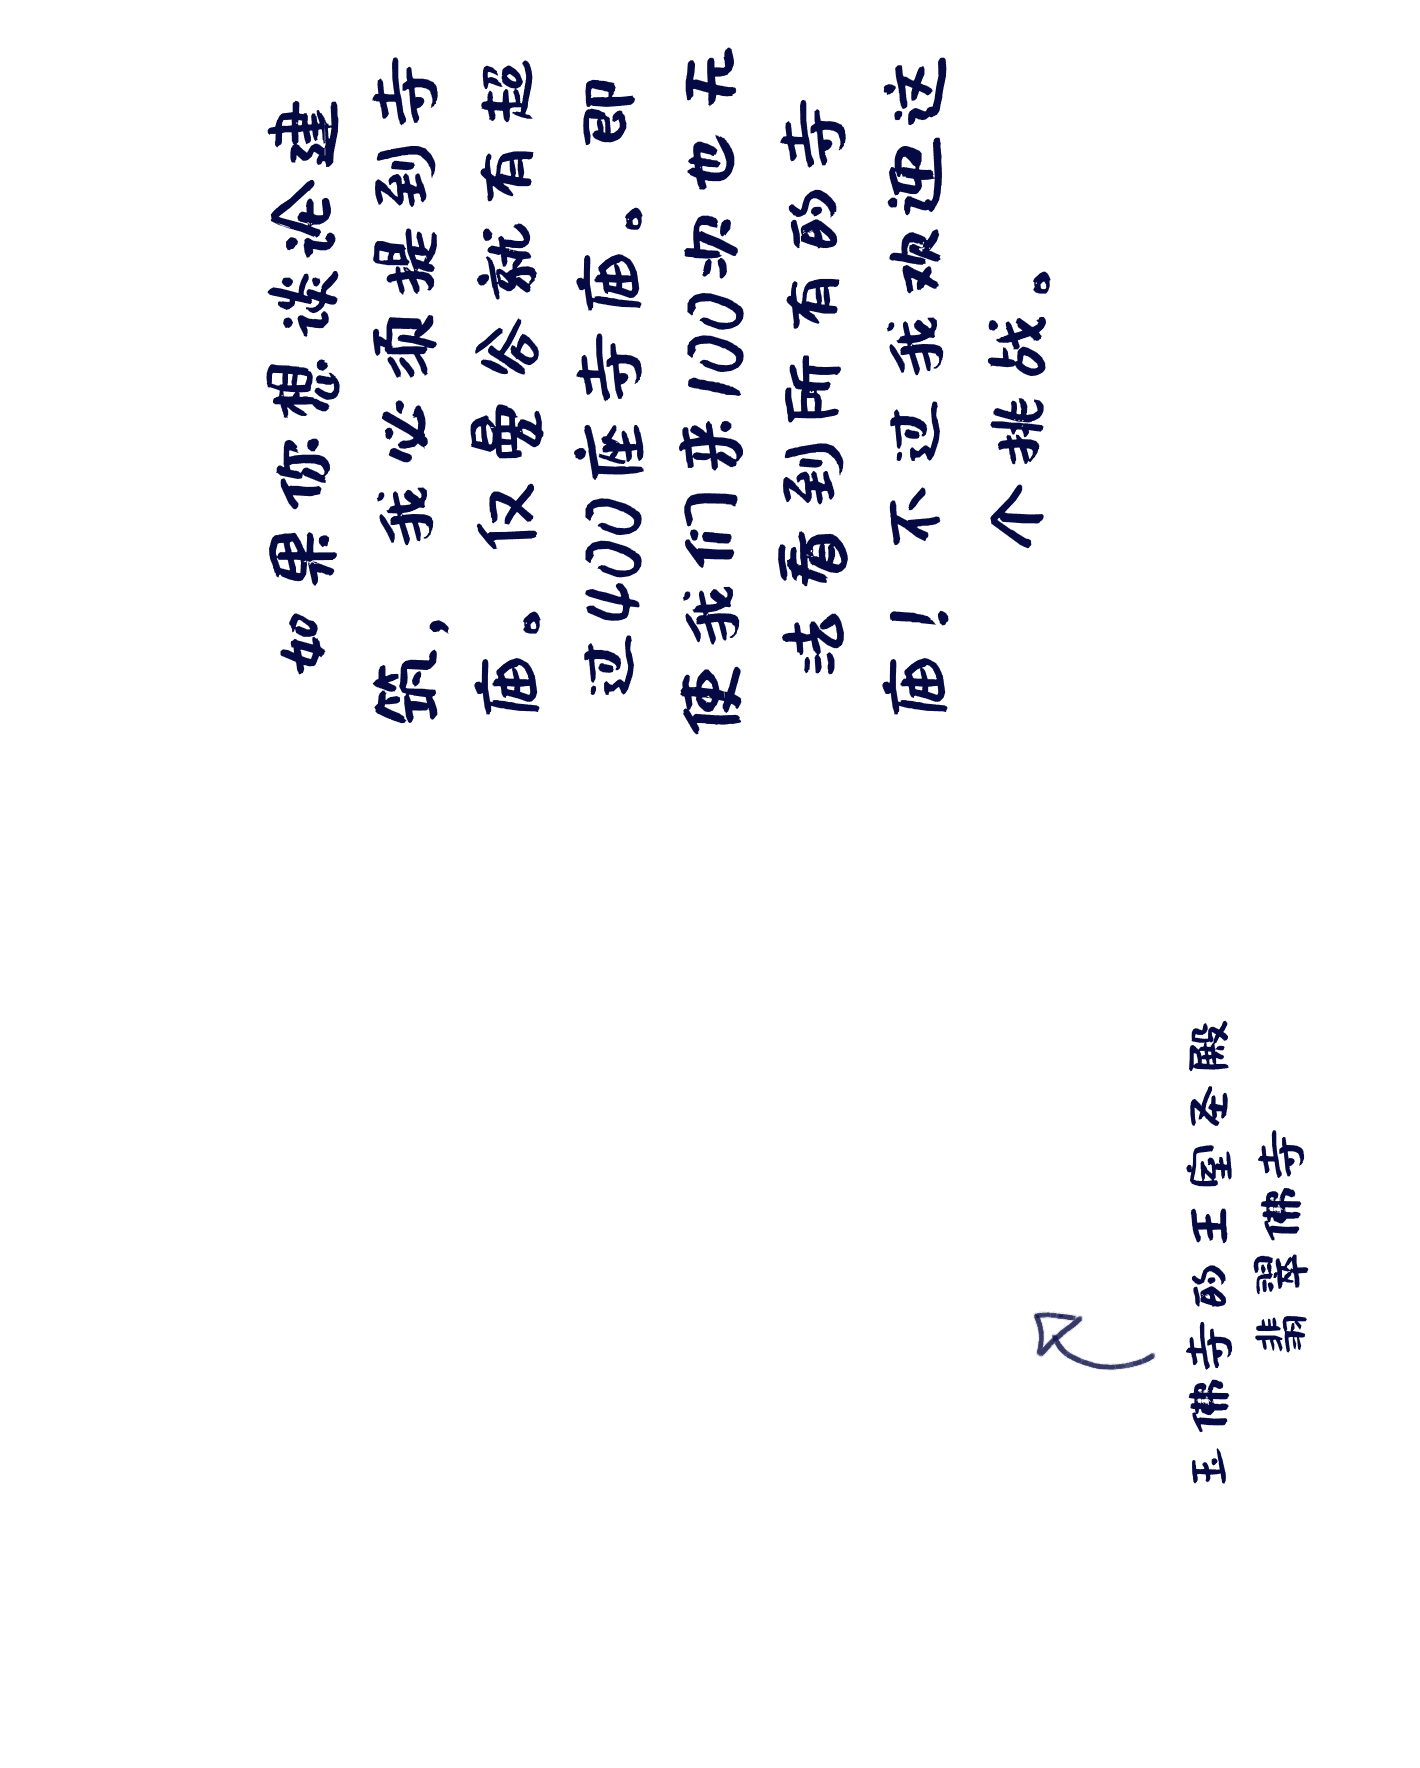 如果你想谈论建
筑，我必须提到寺
庙。仅曼谷就有超
过400座寺庙。即
使我们来100次也无
法看到所有的寺
庙！不过我欢迎这
个挑战。
玉佛寺的王室圣殿
翡翠佛寺